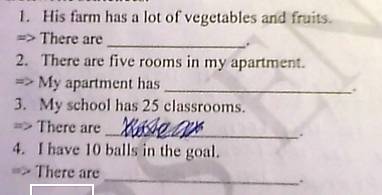 1. His farm has a lot of vegetables and fruits.
=> There are ______________.
2. There are five rooms in my apartment.
=> My apartment has ______________.
3. My school has 25 classrooms.
=> There are ______________.
4. I have 10 balls in the goal.
=> There are ______________.